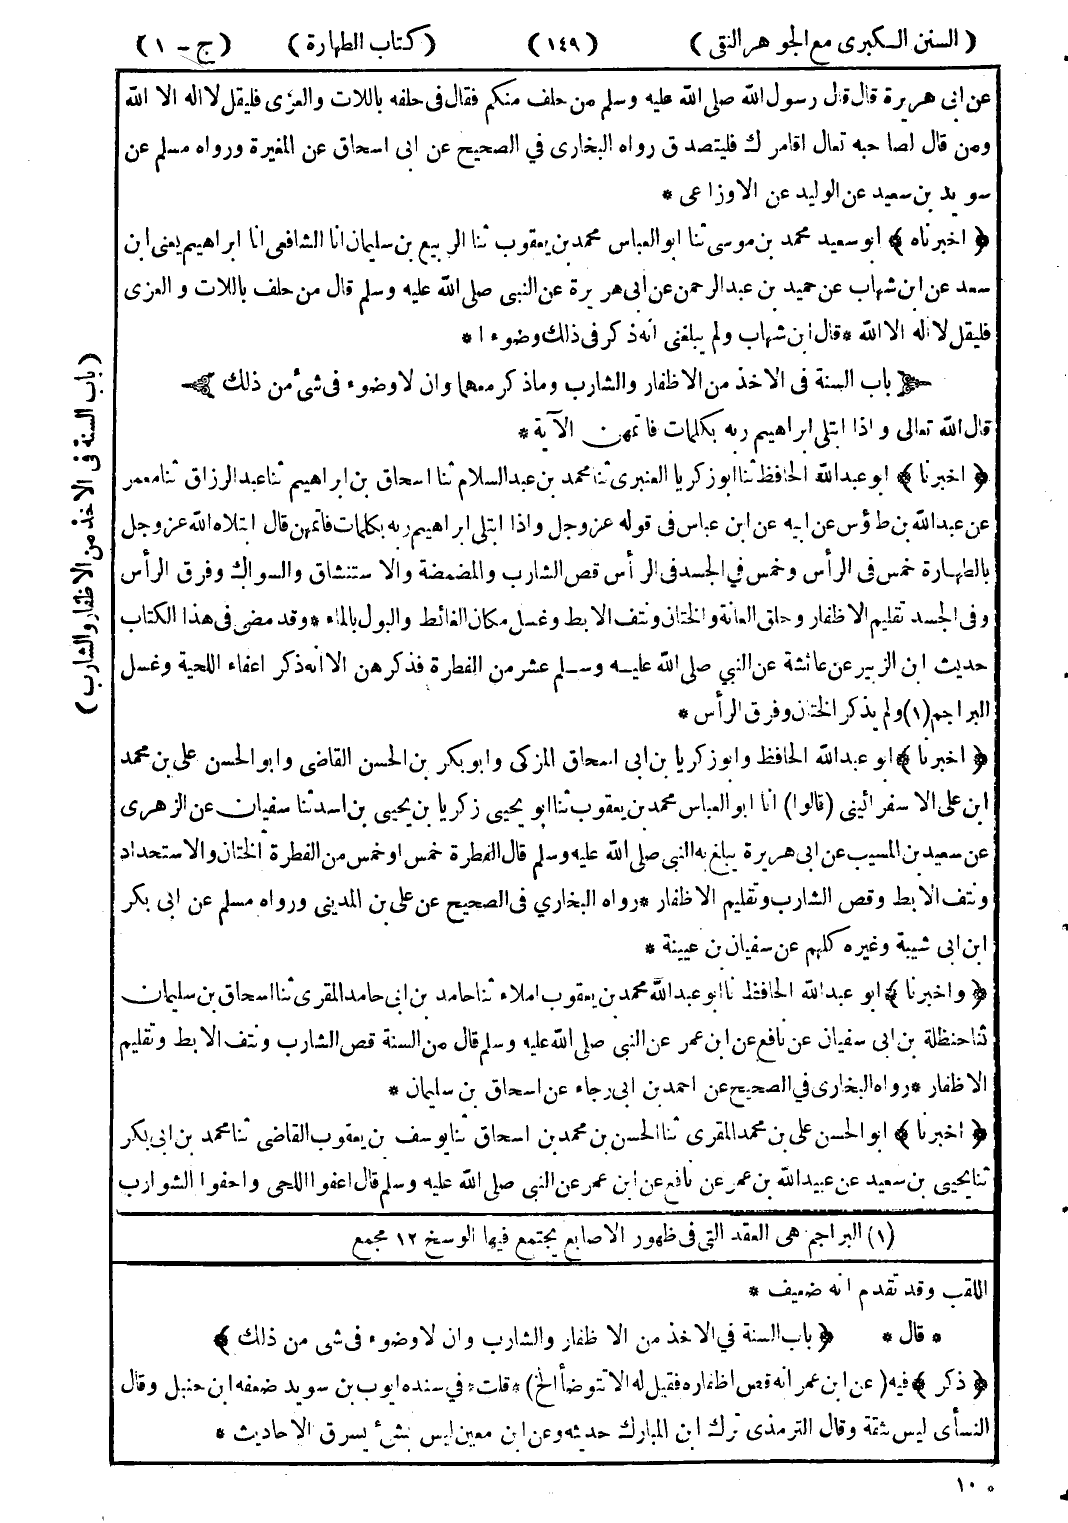 ( السنن الكبرى مع الجوهر النقى ) ( ١٤٩ ) ( كتاب الطهارة ) ( ج - ١ )
عن ابى هريرة قال قال رسول الله صلى الله عليه وسلم من حلف منكم فقال فى حلفه باللات والعزى فليقل لا اله الا الله
ومن قال لصاحبه تعال اقامرك فليتصدق رواه البخارى في الصحيح عن ابى اسحاق عن المغيرة ورواه مسلم عن
سويد بن سعيد عن الوليد عن الاوزاعى *
﴿ اخبرناه ﴾ ابو سعيد محمد بن موسى ثنا ابو العباس محمد بن يعقوب ثنا الربيع بن سليمان انا الشافعى انا ابراهيم يعنى ابن
سعد عن ابن شهاب عن حميد بن عبد الرحمن عن ابى هريرة عن النبى صلى الله عليه وسلم قال من حلف باللات والعزى
فليقل لا اله الا الله * قال ابن شهاب ولم يبلغنى انه ذكر فى ذلك وضوءا *
باب السنة فى الاخذ من الاظفار والشارب وما ذكر معها وان لا وضوء فى شئ من ذلك
قال الله تعالى و اذا ابتلى ابراهيم ربه بكلمات فاتمهن الآية *
﴿ اخبرنا ﴾ ابو عبد الله الحافظ ثنا ابو زكريا العنبرى ثنا محمد بن عبد السلام ثنا اسحاق بن ابراهيم ثنا عبد الرزاق ثنا معمر
عن عبد الله بن طاؤس عن ابيه عن ابن عباس فى قوله عز وجل واذا ابتلى ابراهيم ربه بكلمات فاتمهن قال ابتلاه الله عز وجل
بالطهارة خمس فى الرأس وخمس في الجسد فى الرأس قص الشارب والمضمضة والاستنشاق والسواك وفرق الرأس
وفى الجسد تقليم الاظفار وحلق العانة والختان ونتف الابط وغسل مكان الغائط والبول بالماء * وقد مضى فى هذا الكتاب
حديث ابن الزبير عن عائشة عن النبي صلى الله عليه وسلم عشر من الفطرة فذكرهن الا انه ذكر اعفاء اللحية وغسل
البراجم (١) ولم يذكر الختان وفرق الرأس *
﴿ اخبرنا ﴾ ابو عبد الله الحافظ وابو زكريا بن ابى اسحاق المزكى وابو بكر بن الحسن القاضى وابو الحسن على بن محمد
ابن على الاسفرائينى (قالوا) انا ابو العباس محمد بن يعقوب ثنا ابو يحيى زكريا بن يحيى بن اسد ثنا سفيان عن الزهرى
عن سعيد بن المسيب عن ابى هريرة يبلغ به النبى صلى الله عليه وسلم قال الفطرة خمس او خمس من الفطرة الختان والاستحداد
ونتف الابط وقص الشارب وتقليم الاظفار * رواه البخاري فى الصحيح عن على بن المدينى ورواه مسلم عن ابى بكر
ابن ابى شيبة وغيره كلهم عن سفيان بن عيينة *
﴿ واخبرنا ﴾ ابو عبد الله الحافظ نا ابو عبد الله محمد بن يعقوب املاء ثنا حامد بن ابى حامد المقرى ثنا اسحاق بن سليمان
ثنا حنظلة بن ابى سفيان عن نافع عن ابن عمر عن النبى صلى الله عليه وسلم قال من السنة قص الشارب ونتف الابط وتقليم
الاظفار * رواه البخارى في الصحيح عن احمد بن ابى رجاء عن اسحاق بن سليمان *
﴿ اخبرنا ﴾ ابو الحسن على بن محمد المقرى ثنا الحسن بن محمد بن اسحاق ثنا يوسف بن يعقوب القاضى ثنا محمد بن ابى بكر
ثنا يحيى بن سعيد عن عبيد الله بن عمر عن نافع عن ابن عمر عن النبى صلى الله عليه وسلم قال اعفوا اللحى واحفوا الشوارب
(١) البراجم هى العقد التى فى ظهور الاصابع يجتمع فيها الوسخ ١٢ مجمع
اللقب وقد تقدم انه ضعيف *
* قال * ﴿ باب السنة في الاخذ من الاظفار والشارب وان لا وضوء فى شى من ذلك ﴾
﴿ ذكر ﴾ فيه (عن ابن عمر انه قص اظفاره فقيل له الا تتوضأ الخ) * قلت * في سنده ايوب بن سويد ضعفه ابن حنبل وقال
النسأى ليس بثقة وقال الترمذى ترك ابن المبارك حديثه وعن ابن معين ليس بشئ يسرق الاحاديث *
( باب السنة فى الاخذ من الاظفار والشارب )